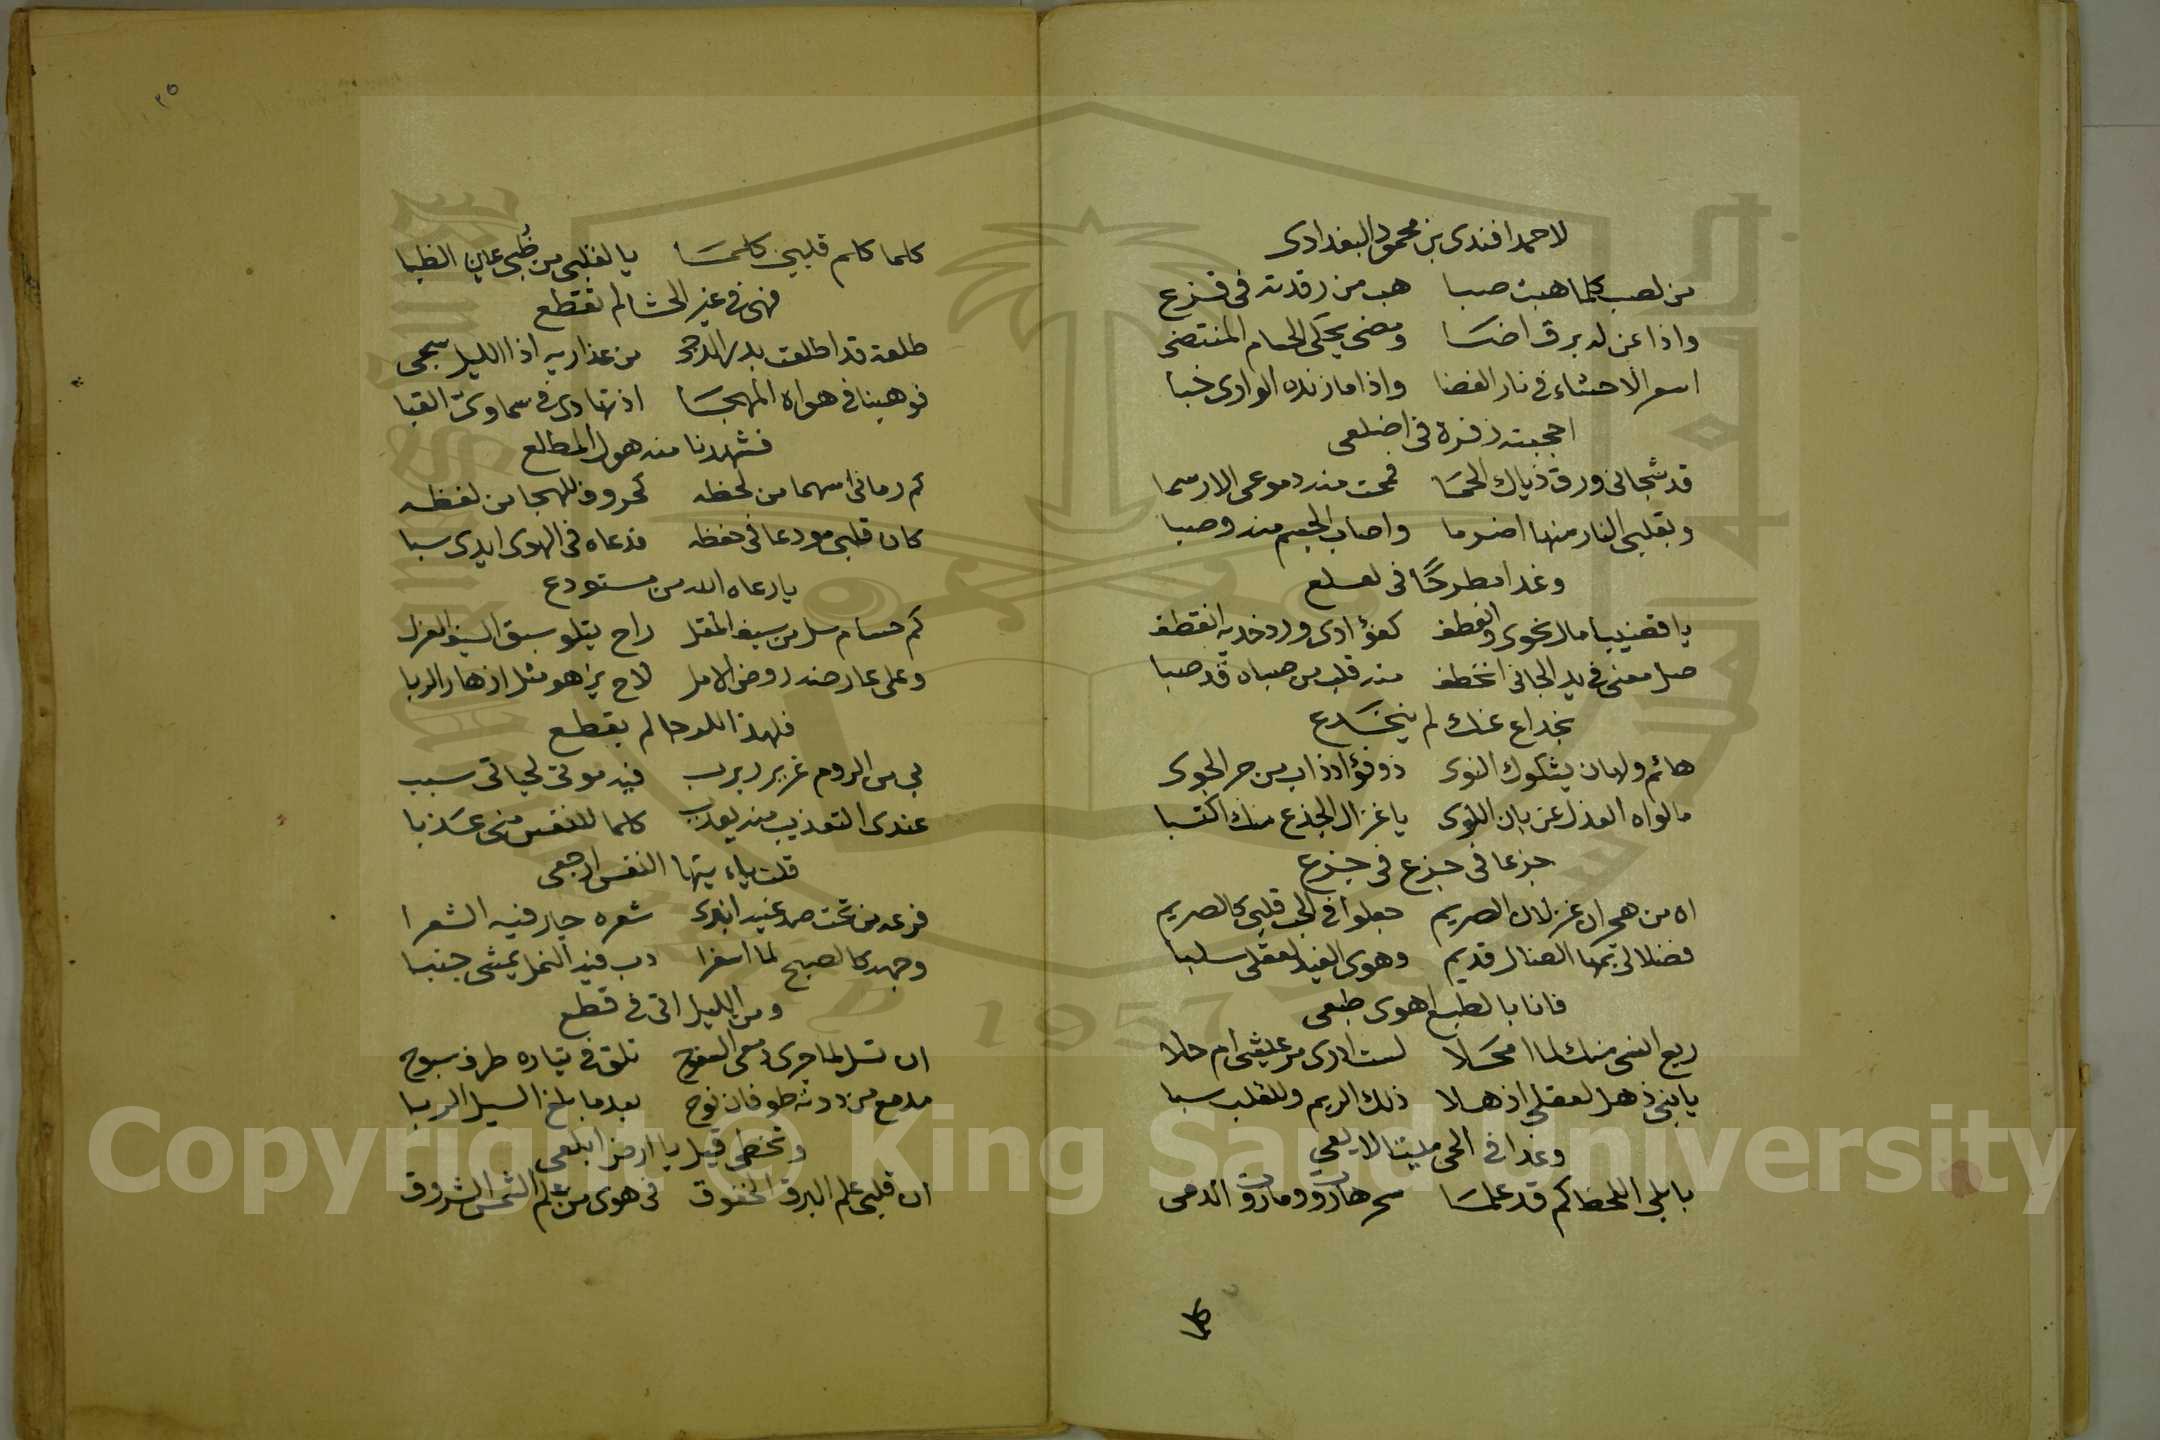 لاحمد افندى بن محمود البغدادى
من لصب كلما هبت صبا هب من رقدته فى فزع
واذا عن له برق اضا ومضى يحكى الحسام المنتضى
اسعر الاحشاء فى نار الغضا واذا ما زنده الوادى خبا
اججبته زفرة فى اضلعى
قد شجانى ورق ذياك الحما فمحت منه دموعى الارسما
وبقلبى النار منها اضرما واصاب الجسم منه وصبا
وغدا مطرحًا فى لعلع
يا قضيبا مال نحوى وانعطف كفؤادى ورد خديه انقطف
صل معنى فى يد الجانى انخطف منه قلب من صباه قد صبا
بخداع عنك لم ينخدع
هائم ولهان يشكوك النوى ذو فؤاد ذاب من حر الجوى
ما لواه العذل عن بان اللوى يا غزال الجذع منك اكتسبا
جزعا فى جزع فى جزع
اه من هجران غزلان الصريم جعلوا فى الحب قلبى كالصريم
فضلالى بمها الضال قديم وهوى الغيد لعقلى سلبا
فانا بالطبع اهوى طبعى
ربع انسى منك لما امحلا لست ادرى مر عيشى ام حلا
يا بنى ذهل لعقلى اذهلا ذلك الريم وللقلب سبا
وغدا فى الحى ميتا لا يعى
بابلى اللحظ كم قد علما سحر هاروت وماروت الدمى
كلما
٢٥
كلما كلم قلبى كلما يا لقلبى من ظُبى عين الظبا
فهى فى غير الحشا لم تقطع
طلعة قد اطلعت بدر الدجى من عذاريه اذا الليل سجى
فوهبنا فى هواه المهجا اذ تهادى فى سماوىّ القبا
فشهدنا منه هول المطلع
كم رمانى اسهما من لحظه كحروف للهجا من لفظه
كان قلبى مودعا فى حفظه فدعاه فى الهوى ايدى سبا
يا رعاه الله من مستودع
كم حسام سل من سيف المقل راح يتلو سبق السيف العزل
وعلى عارضه روض الامل لاح يزهو مثل ازهار الربا
فلهذا اللوحا لم يقطع
بى من الروم غرير ربرب فيه موتى لحياتى سبب
عندى التعذيب منه يعذب كلما للنفس منى عذبا
قلت ياء يتها النفس ارجعى
فرعه من تحت صدغيه انبرى شعره حار فيه الشعرا
وجهه كالصبح لما اسفرا دب فيه النمل يمشى جنبا
ومن الليل اتى فى قطع
ان تسل لما جرى دمعى السفوح تلق فى تياره طرف سبوح
مدمع من دونه طوفان نوح بعد ما بلغ السيل الربا
وتخطى قيل يا ارض ابلعى
ان قلبى علم البرق الخفوق فى هوى من علم الشمس الشروق